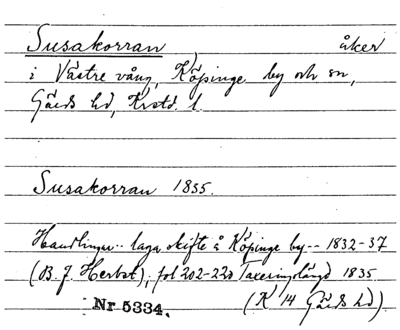 Susakorran åker
i Västre vång, Köpinge by och sn,
Gärds hd, Krstd. l.
Susakorran 1835.
Handlingar -- laga skifte å Köpinge by -- 1832-37
(B. J. Herbst), fol 202-220 Taxeringslängd 1835
Nr 5334. (K 14 Gärds hd)